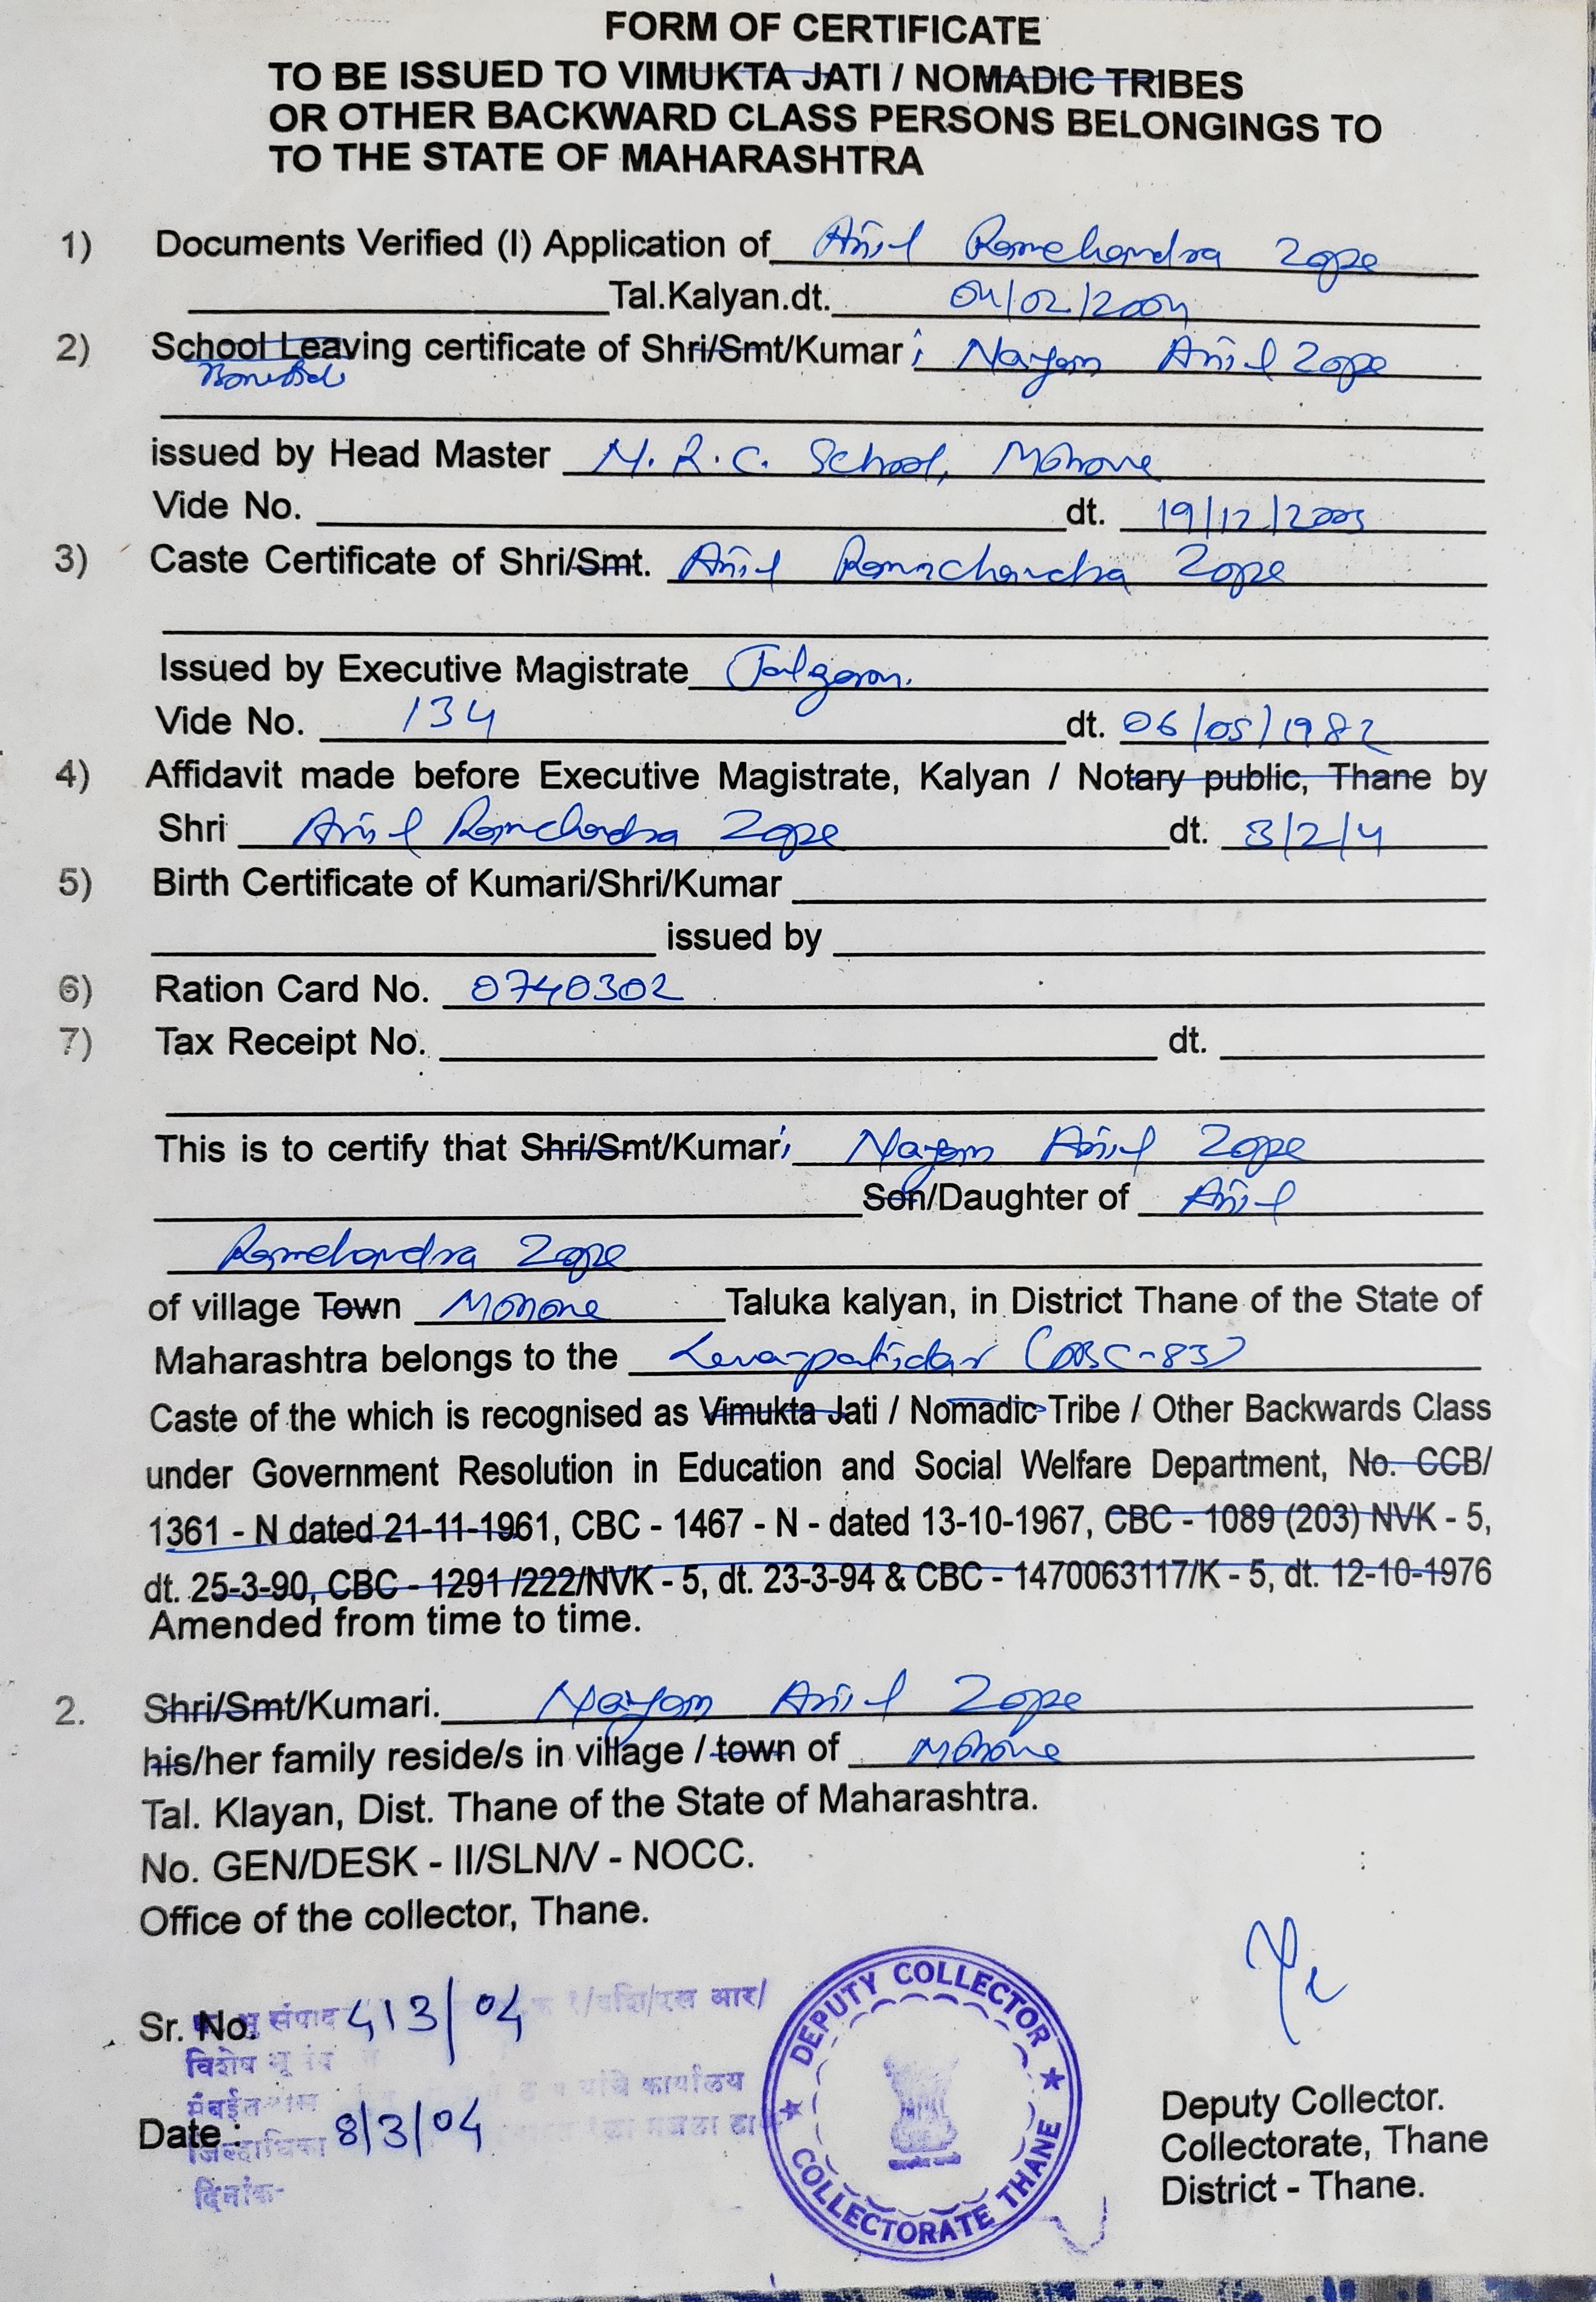 FORM OF CERTIFICATE
TO BE ISSUED TO VIMUKTA JATI / NOMADIC TRIBES
OR OTHER BACKWARD CLASS PERSONS BELONGINGS TO
TO THE STATE OF MAHARASHTRA
1) Documents Verified (I) Application of Anil Ramchandra Zope
Tal.Kalyan.dt. 04/02/2004
2) School Leaving certificate of Shri/Smt/Kumari Nayan Anil Zope
Bonafide
issued by Head Master N. R. C. School, Mohone
Vide No. dt. 19/12/2003
3) Caste Certificate of Shri/Smt. Anil Ramchandra Zope
Issued by Executive Magistrate Jalgaon.
Vide No. 134 dt. 06/05/1982
4) Affidavit made before Executive Magistrate, Kalyan / Notary public, Thane by
Shri Anil Ramchandra Zope dt. 3/2/4
5) Birth Certificate of Kumari/Shri/Kumar
issued by
6) Ration Card No. 0740302
7) Tax Receipt No. dt.
This is to certify that Shri/Smt/Kumari Nayan Anil Zope
Son/Daughter of Anil
Ramchandra Zope
of village Town Mohone Taluka kalyan, in District Thane of the State of
Maharashtra belongs to the Leva-patidar (OBC-83)
Caste of the which is recognised as Vimukta Jati / Nomadic Tribe / Other Backwards Class
under Government Resolution in Education and Social Welfare Department, No. CCB/
1361 - N dated 21-11-1961, CBC - 1467 - N - dated 13-10-1967, CBC - 1089 (203) NVK - 5,
dt. 25-3-90, CBC - 1291 /222/NVK - 5, dt. 23-3-94 & CBC - 1470063117/K - 5, dt. 12-10-1976
Amended from time to time.
2. Shri/Smt/Kumari. Nayan Anil Zope
his/her family reside/s in village / town of Mohone
Tal. Klayan, Dist. Thane of the State of Maharashtra.
No. GEN/DESK - II/SLN/V - NOCC.
Office of the collector, Thane.
Sr. No. 413/04
संपाद आर/
विशेष
कार्यालय
Date : 8/3/04
दिनांक-
DEPUTY COLLECTOR
COLLECTORATE THANE
Deputy Collector.
Collectorate, Thane
District - Thane.